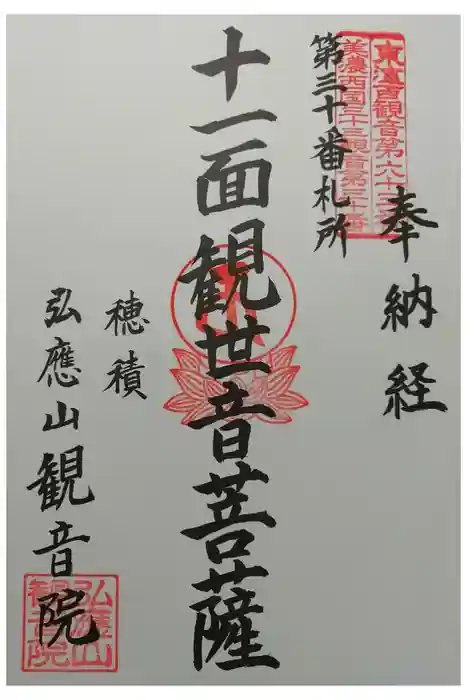 奉納経
東海百観音第六十三番
美濃西国三十三観音第三十番
第三十番札所
十一面観世音菩薩
穂積
弘應山観音院
弘應山
観音院